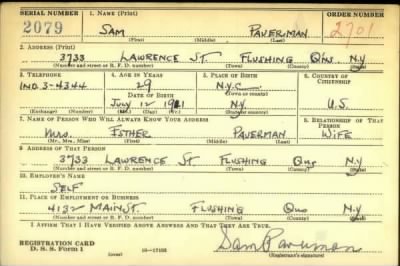 SERIAL NUMBER 1. NAME (Print) ORDER NUMBER
2079 SAM PAVERMAN 2701
(First) (Middle) (Last)
2. ADDRESS (Print)
3733 LAWRENCE ST. FLUSHING QNS. N.Y.
(Number and street or R. F. D. number) (Town) (County) (State)
3. TELEPHONE 4. AGE IN YEARS 5. PLACE OF BIRTH 6. COUNTRY OF CITIZENSHIP
IND. 3-4344 29 N.Y.C.
DATE OF BIRTH (Town or county)
JULY 12 1911 N.Y. U.S.
(Exchange) (Number) (Mo.) (Day) (Yr.) (State or country)
7. NAME OF PERSON WHO WILL ALWAYS KNOW YOUR ADDRESS 8. RELATIONSHIP OF THAT PERSON
MRS. ESTHER PAVERMAN WIFE
(Mr., Mrs., Miss) (First) (Middle) (Last)
9. ADDRESS OF THAT PERSON
3733 LAWRENCE ST FLUSHING QNS N.Y
(Number and street or R. F. D. number) (Town) (County) (State)
10. EMPLOYER'S NAME
SELF
11. PLACE OF EMPLOYMENT OR BUSINESS
4132 MAIN ST. FLUSHING QNS N.Y
(Number and street or R. F. D. number) (Town) (County) (State)
I AFFIRM THAT I HAVE VERIFIED ABOVE ANSWERS AND THAT THEY ARE TRUE.
REGISTRATION CARD
D. S. S. Form 1 (over) Sam Paverman
(Registrant's signature)